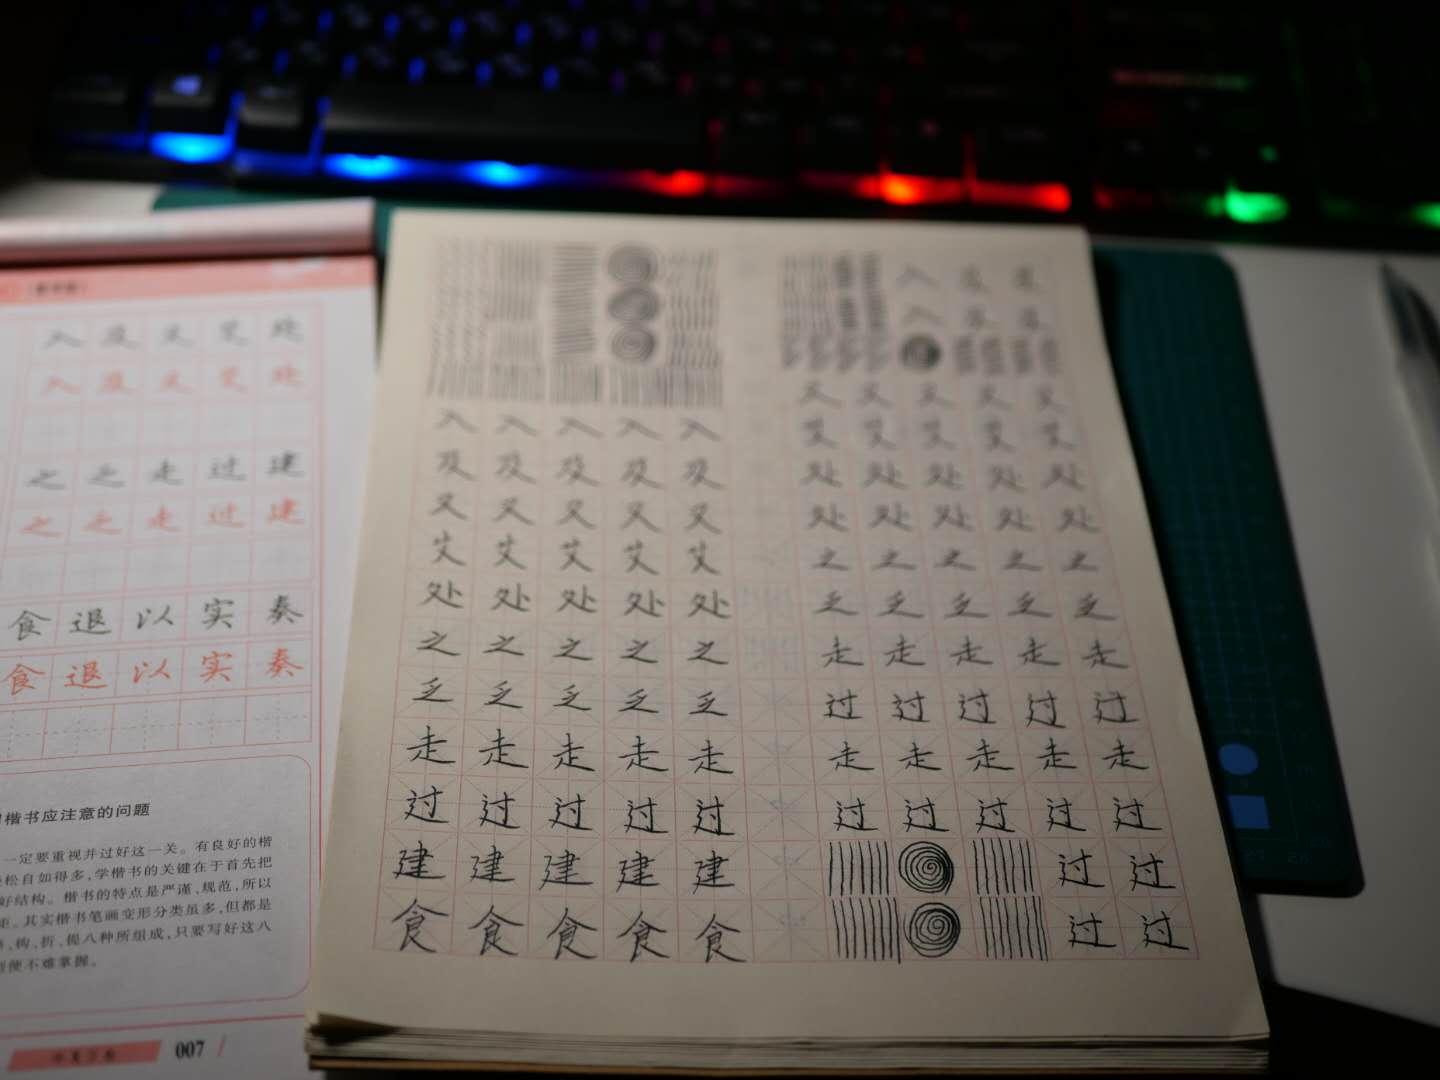 入 及 又 艾 处
入 及 又 艾 处
之 乏 走 过 建
之 乏 走 过 建
食 退 以 实 奏
食 退 以 实 奏
楷书应注意的问题
一定要重视并过好这一关。有良好的楷
松自如得多,学楷书的关键在于首先把
好结构。楷书的特点是严谨、规范,所以
其实楷书笔画变形分类虽多,但都是
、钩、折、提八种所组成,只要写好这八
便不难掌握。
007
入 入 入 入 入
及 及 及 及 及
又 又 又 又 又
艾 艾 艾 艾 艾
处 处 处 处 处
之 之 之 之 之
乏 乏 乏 乏 乏
走 走 走 走 走
过 过 过 过 过
建 建 建 建 建
食 食 食 食 食
入
入
又 又 又 又 又
艾 艾 艾 艾 艾
处 处 处 处 处
处 处 处 处 处
之 之 之 之 之
乏 乏 乏 乏 乏
走 走 走 走 走
过 过 过 过 过
走 走 走 走 走
过 过 过 过 过
过 过
过 过